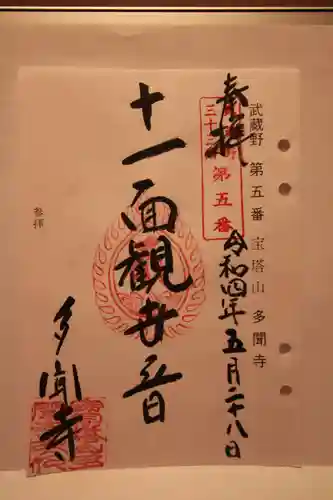 武蔵野 第五番 宝塔山 多聞寺
奉拝
第五番
令和四年五月二十八日
十一面観世音
参拝
多聞寺